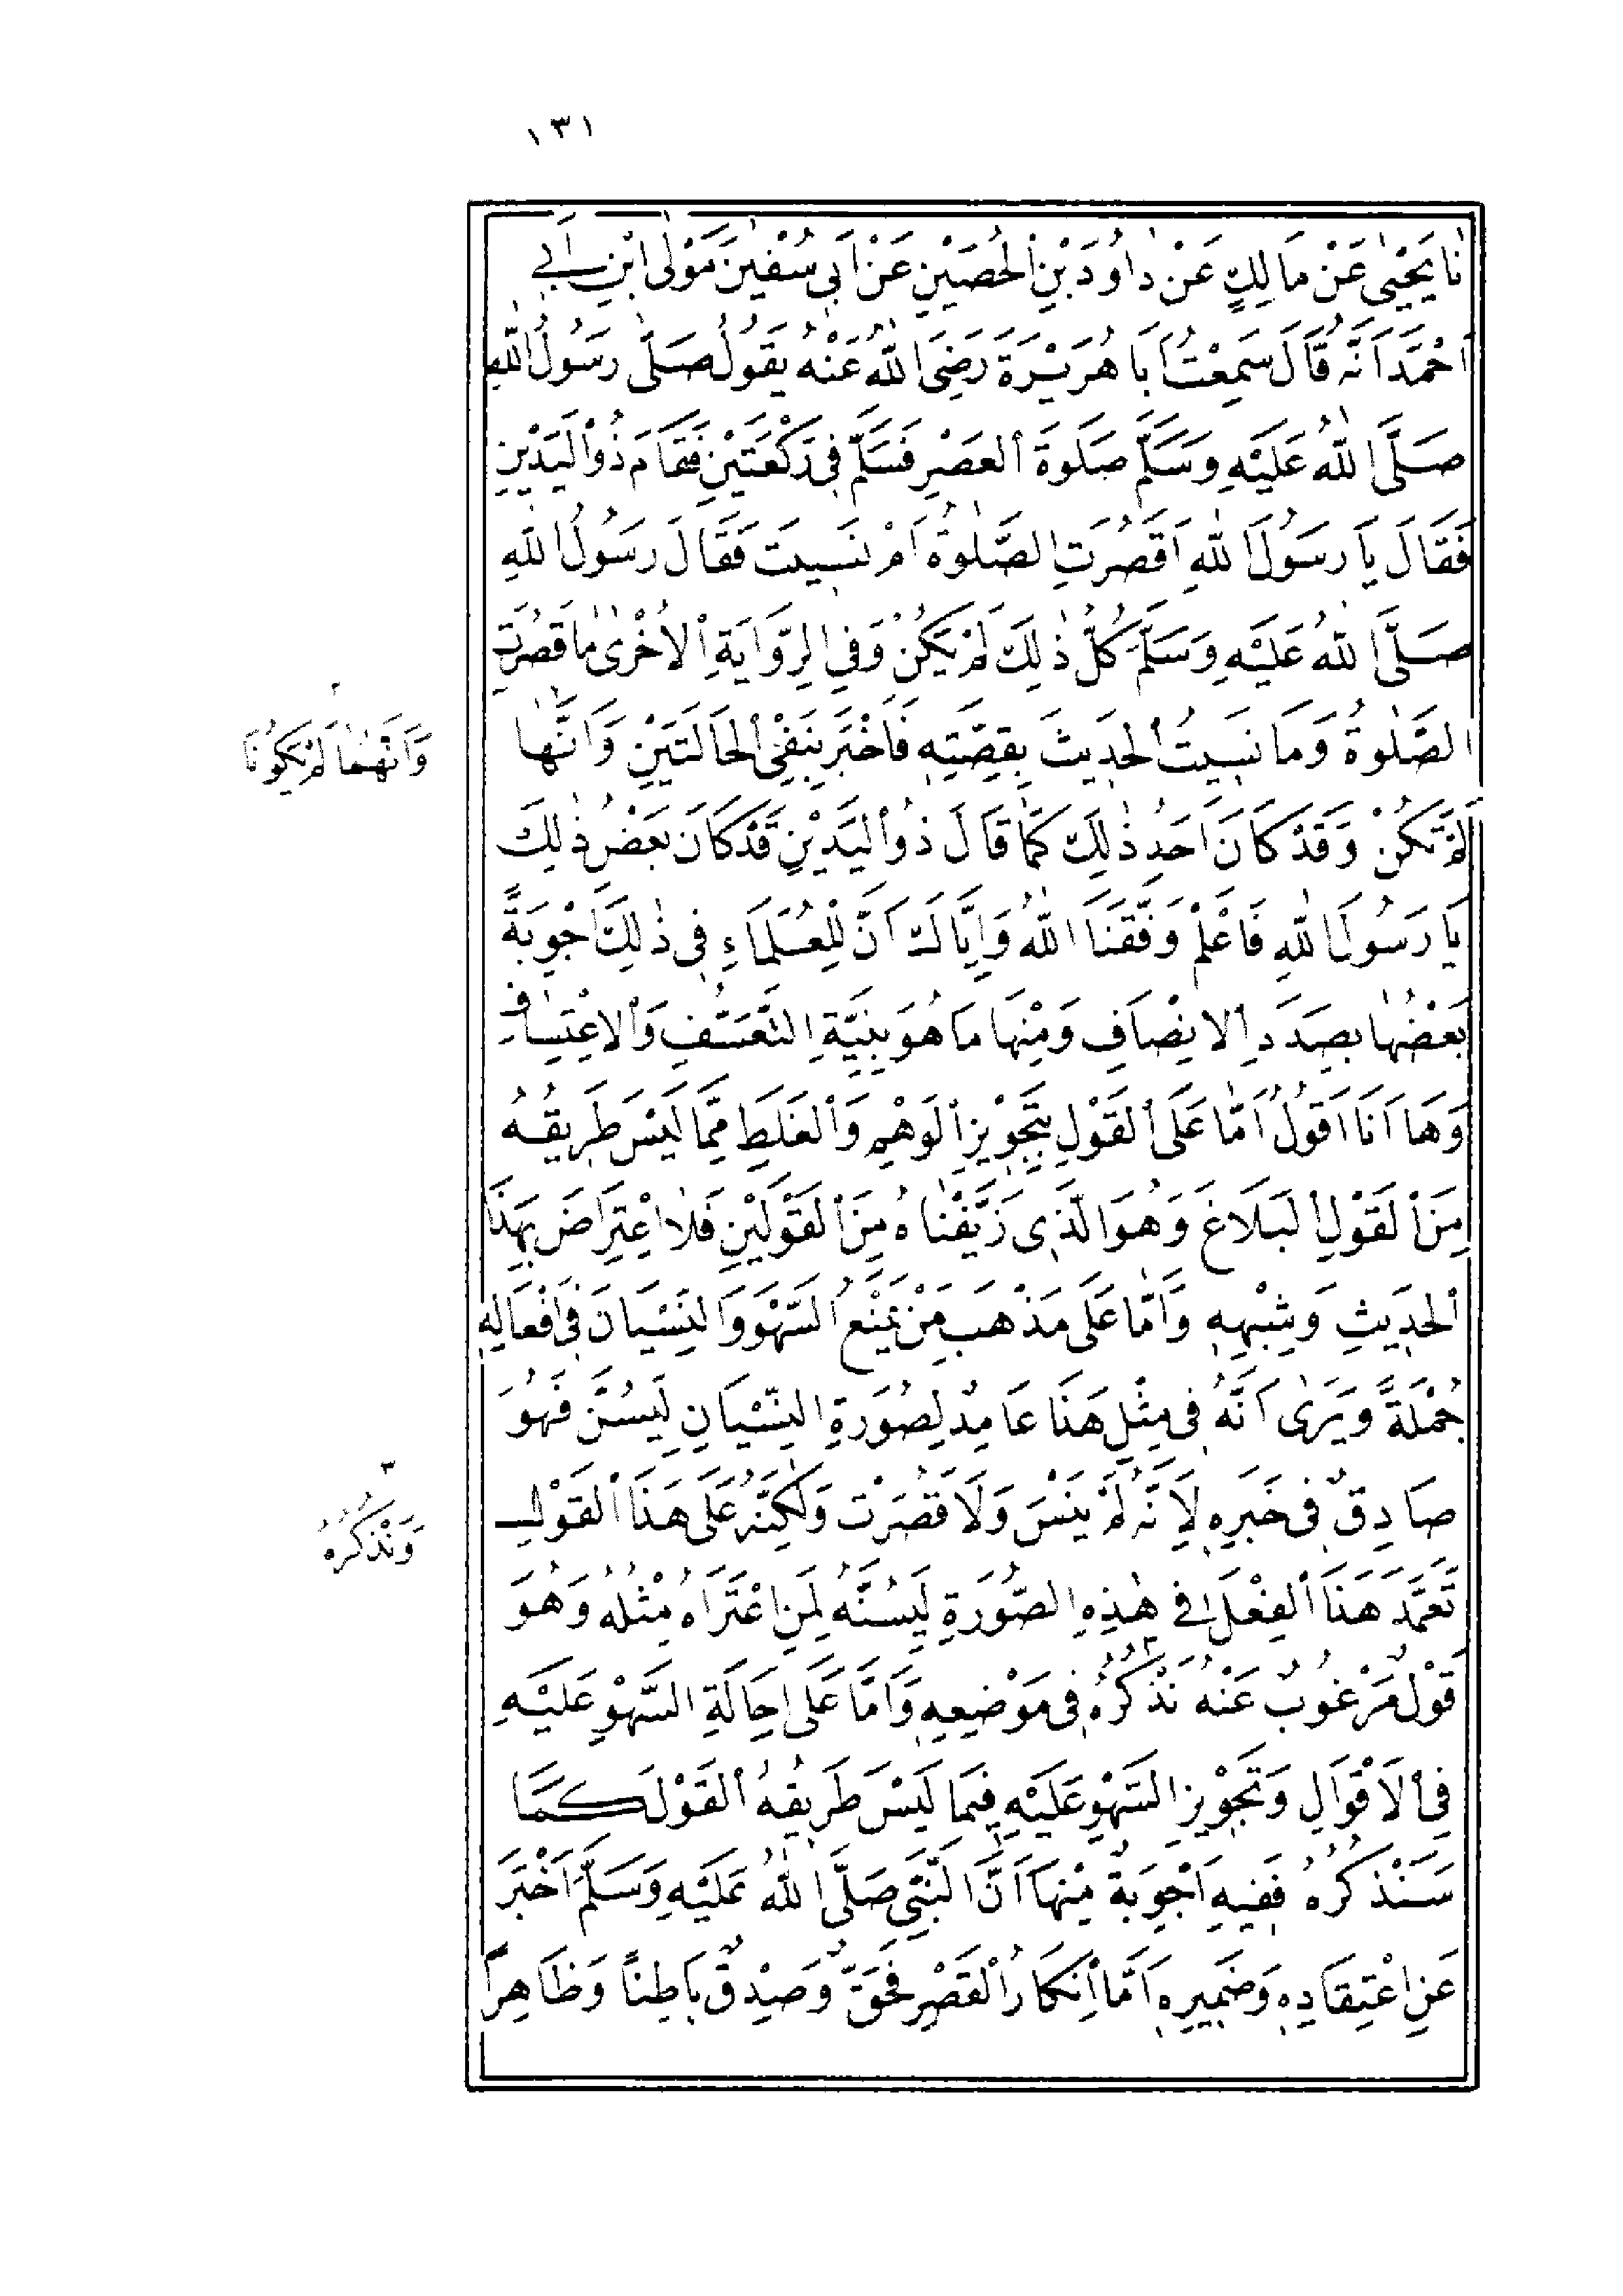 ١٣١
نَا يَحْيٰى عَنْ مَالِكٍ عَنْ دَاوُدَ بْنِ الْحُصَيْنِ عَنْ اَبِى سُفْيٰنَ مَوْلَى ابْنِ اَبِى
اَحْمَدَ اَنَّهُ قَالَ سَمِعْتُ اَبَا هُرَيْرَةَ رَضِىَ اللّٰهُ عَنْهُ يَقُولُ صَلَّى رَسُولُ اللّٰهِ
صَلَّى اللّٰهُ عَلَيْهِ وَسَلَّمَ صَلَوةَ الْعَصْرِ فَسَلَّمَ فِى رَكْعَتَيْنِ فَقَامَ ذُو الْيَدَيْنِ
فَقَالَ يَا رَسُولَ اللّٰهِ اَقَصُرَتِ الصَّلٰوةُ اَمْ نَسِيتَ فَقَالَ رَسُولُ اللّٰهِ
صَلَّى اللّٰهُ عَلَيْهِ وَسَلَّمَ كُلُّ ذٰلِكَ لَمْ يَكُنْ وَفِى الرِّوَايَةِ الْاُخْرٰى مَا قَصُرَتِ
الصَّلٰوةُ وَمَا نَسِيتُ الْحَدِيثَ بِقِصَّتِهِ فَاَخْبَرَ بِنَفْىِ الْحَالَتَيْنِ وَاَنَّهَا
وَاَنَّهُمَا لَمْ يَكُونَا ٢
لَمْ تَكُنْ وَقَدْ كَانَ اَحَدُ ذٰلِكَ كَمَا قَالَ ذُو الْيَدَيْنِ قَدْ كَانَ بَعْضُ ذٰلِكَ
يَا رَسُولَ اللّٰهِ فَاعْلَمْ وَفَّقَنَا اللّٰهُ وَاِيَّاكَ اَنَّ لِلْعُلَمَاءِ فِى ذٰلِكَ اَجْوِبَةً
بَعْضُهَا بِصَدَدِ الْاِنْصَافِ وَمِنْهَا مَا هُوَ بِنِيَّةِ التَّعَسُّفِ وَالْاِعْتِسَافِ
وَهَا اَنَا اَقُولُ اَمَّا عَلَى الْقَوْلِ بِتَجْوِيزِ الْوَهْمِ وَالْغَلَطِ مِمَّا لَيْسَ طَرِيقُهُ
مِنَ الْقَوْلِ الْبَلَاغَ وَهُوَ الَّذِى زَيَّفْنَاهُ مِنَ الْقَوْلَيْنِ فَلَا اعْتِرَاضَ بِهٰذَا
الْحَدِيثِ وَشِبْهِهِ وَاَمَّا عَلَى مَذْهَبِ مَنْ يَمْنَعُ السَّهْوَ وَالنِّسْيَانَ فِى اَفْعَالِهِ
جُمْلَةً وَيَرٰى اَنَّهُ فِى مِثْلِ هَذَا عَامِدٌ لِصُورَةِ النِّسْيَانِ لِيَسُنَّ فَهُوَ
صَادِقٌ فِى خَبَرِهِ لِاَنَّهُ لَمْ يَنْسَ وَلَا قَصُرَتْ وَلٰكِنَّهُ عَلَى هَذَا الْقَوْلِ
وَنَذْكُرُهُ ٣
تَعَمَّدَ هَذَا الْفِعْلَ فِى هٰذِهِ الصُّورَةِ لِيَسُنَّهُ لِمَنِ اعْتَرَاهُ مِثْلُهُ وَهُوَ
قَوْلٌ مَرْغُوبٌ عَنْهُ نَذْكُرُهُ ٣ فِى مَوْضِعِهِ وَاَمَّا عَلَى اِحَالَةِ السَّهْوِ عَلَيْهِ
فِى الْاَقْوَالِ وَتَجْوِيزِ السَّهْوِ عَلَيْهِ فِيمَا لَيْسَ طَرِيقُهُ الْقَوْلَ كَمَا
سَنَذْكُرُهُ فَفِيهِ اَجْوِبَةٌ مِنْهَا اَنَّ النَّبِىَّ صَلَّى اللّٰهُ عَلَيْهِ وَسَلَّمَ اَخْبَرَ
عَنِ اعْتِقَادِهِ وَضَمِيرِهِ اَمَّا اِنْكَارُ الْقَصْرِ فَحَقٌّ وَصِدْقٌ بَاطِنًا وَظَاهِرًا